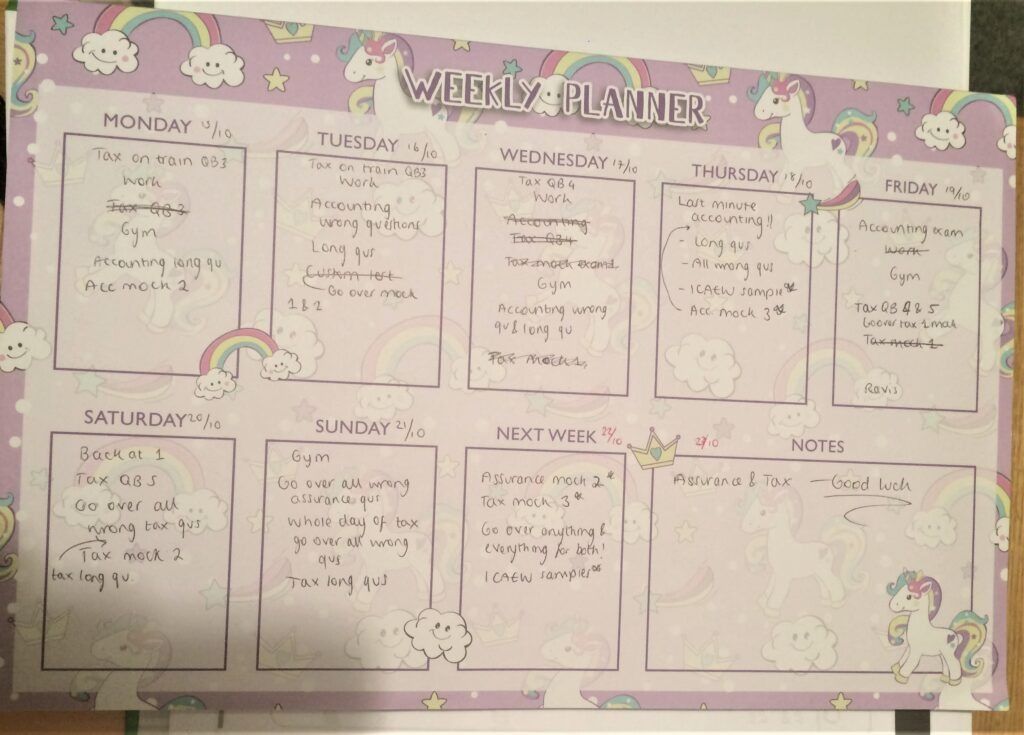 WEEKLY PLANNER
MONDAY 15/10
Tax on train QB3
Work
Tax QB3
Gym
Accounting long qu
Acc mock 2
TUESDAY 16/10
Tax on train QB3
Work
Accounting
wrong questions
Long qus
Custom test
Go over mock
1 & 2
WEDNESDAY 17/10
Tax QB4
Work
Accounting
Tax QB4
Tax mock exam 1
Gym
Accounting wrong
qu & long qu
Tax mock 1
THURSDAY 18/10
Last minute
accounting!!
- Long qus
- All wrong qus
- ICAEW sample*
Acc mock 3*
FRIDAY 19/10
Accounting exam
Work
Gym
Tax QB 4 & 5
Go over tax 1
Tax mock 1
Ravis
SATURDAY 20/10
Back at 1
Tax QB5
Go over all
wrong tax qus
Tax mock 2
tax long qu.
SUNDAY 21/10
Gym
Go over all wrong
assurance qus
whole day of tax
go over all wrong
qus
Tax long qus
NEXT WEEK 22/10
Assurance mock 2*
Tax mock 3*
Go over anything &
everything for both!
ICAEW samples*
23/10 NOTES
Assurance & Tax — Good luck